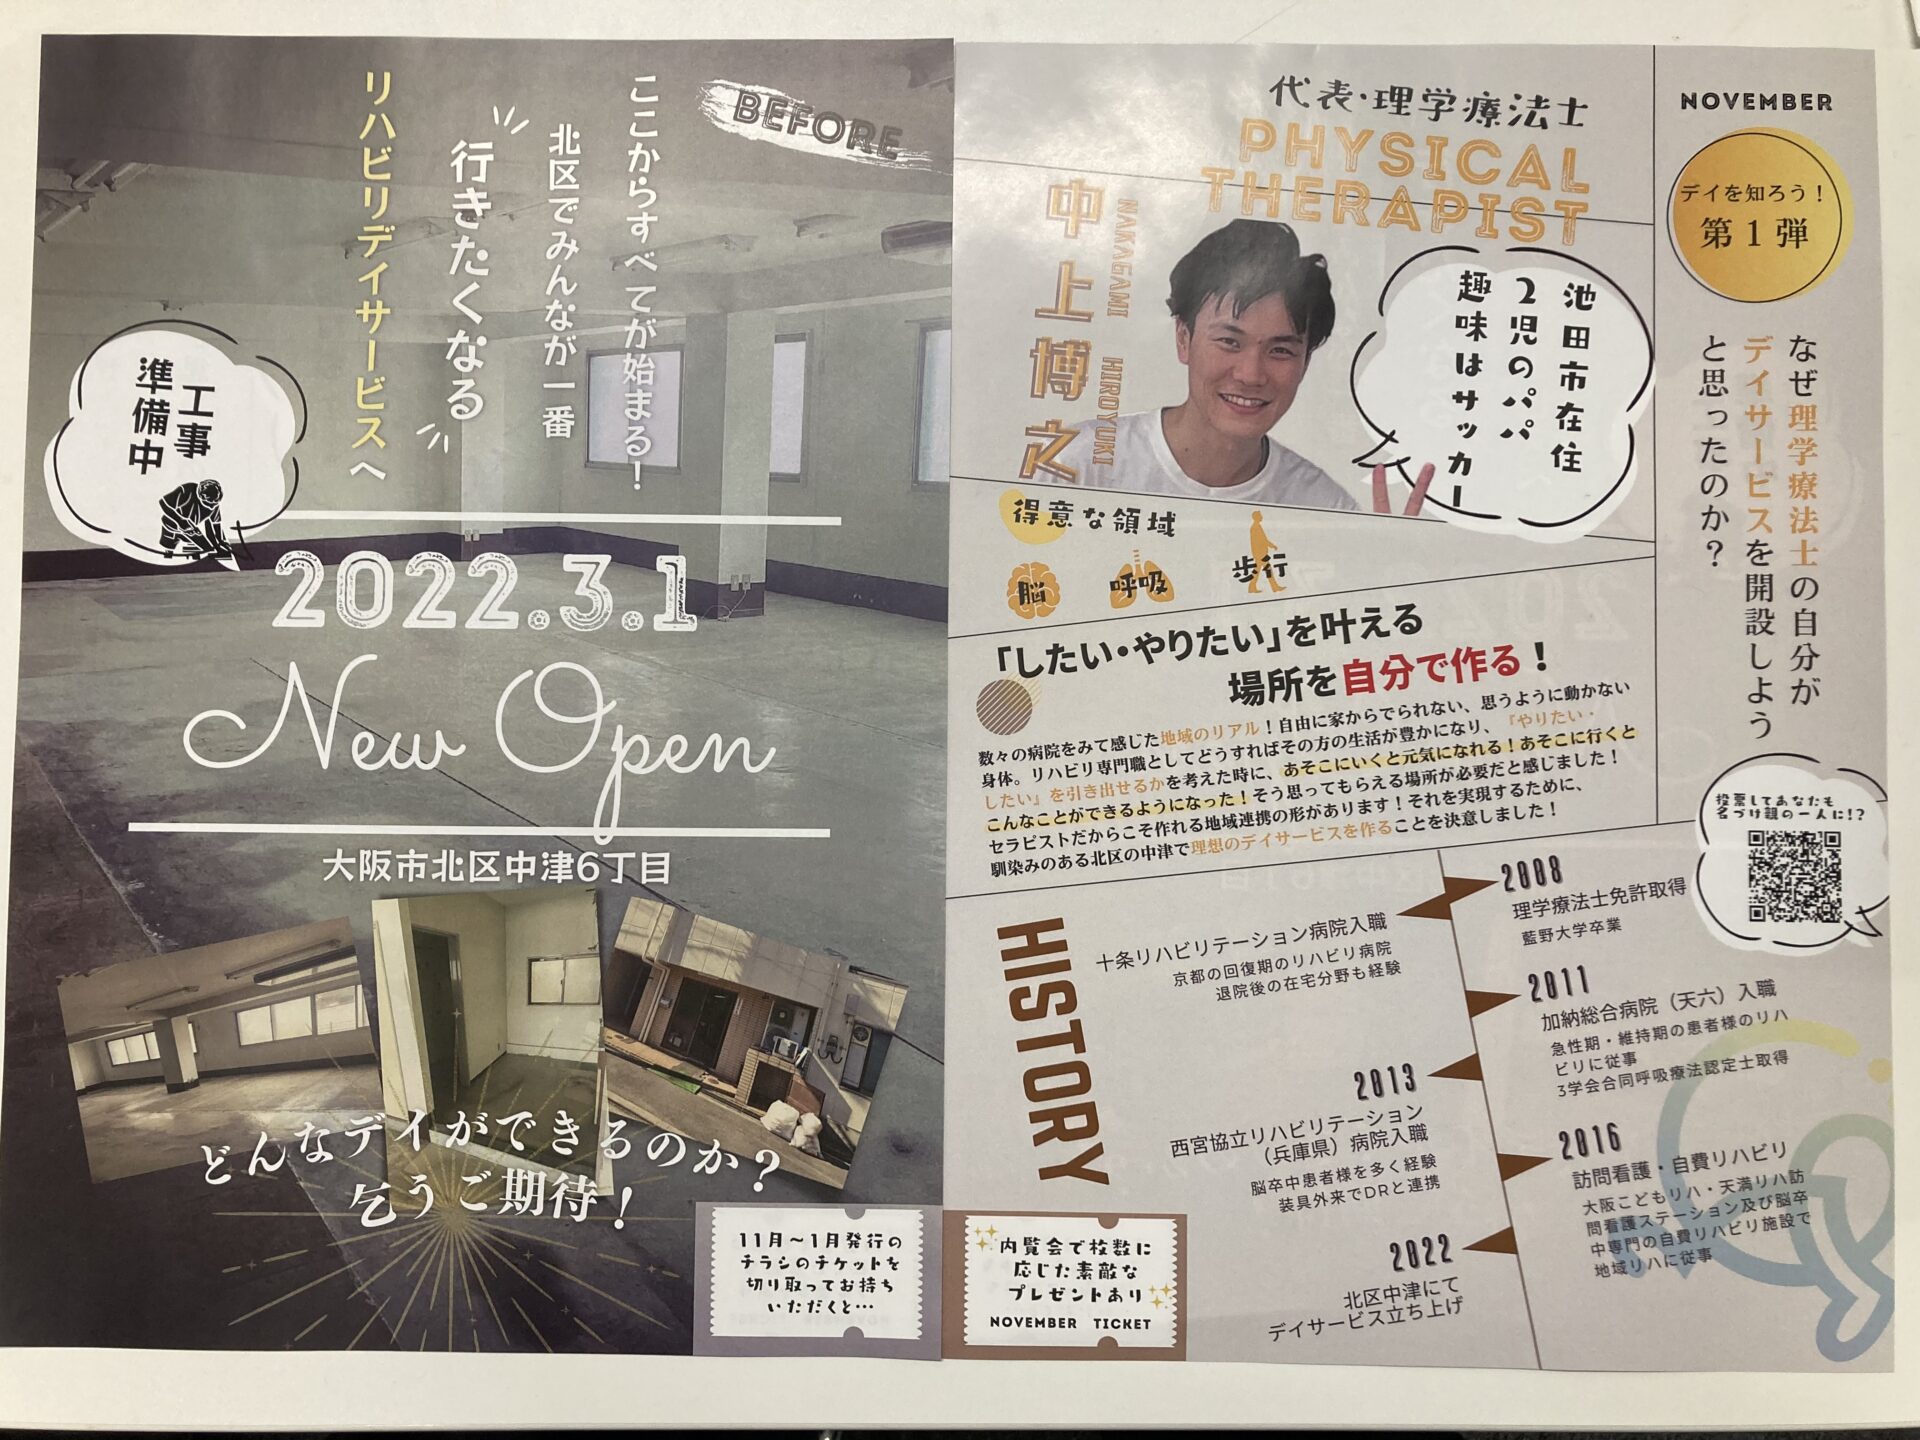 BEFORE
ここからすべてが始まる！
北区でみんなが一番
行きたくなる
リハビリデイサービスへ
工事
準備中
2022.3.1
New Open
大阪市北区中津6丁目
どんなデイができるのか？
乞うご期待！
11月～1月発行の
チラシのチケットを
切り取ってお持ち
いただくと…
代表・理学療法士
PHYSICAL
THERAPIST
中上博之
NAKAGAMI HIROYUKI
池田市在住
2児のパパ
趣味はサッカー
得意な領域
脳
呼吸
歩行
「したい・やりたい」を叶える
場所を自分で作る！
数々の病院をみて感じた地域のリアル！自由に家からでられない、思うように動かない
身体。リハビリ専門職としてどうすればその方の生活が豊かになり、『やりたい・
したい』を引き出せるかを考えた時に、あそこにいくと元気になれる！あそこに行くと
こんなことができるようになった！そう思ってもらえる場所が必要だと感じました！
セラピストだからこそ作れる地域連携の形があります！それを実現するために、
馴染みのある北区の中津で理想のデイサービスを作ることを決意しました！
NOVEMBER
デイを知ろう！
第1弾
なぜ理学療法士の自分が
デイサービスを開設しよう
と思ったのか？
投票してあなたも
名づけ親の一人に!?
HISTORY
2008
理学療法士免許取得
藍野大学卒業
十条リハビリテーション病院入職
京都の回復期のリハビリ病院
退院後の在宅分野も経験
2011
加納総合病院（天六）入職
急性期・維持期の患者様のリハ
ビリに従事
3学会合同呼吸療法認定士取得
2013
西宮協立リハビリテーション
（兵庫県）病院入職
脳卒中患者様を多く経験
装具外来でDRと連携
2016
訪問看護・自費リハビリ
大阪こどもリハ・天満リハ訪
問看護ステーション及び脳卒
中専門の自費リハビリ施設で
地域リハに従事
2022
北区中津にて
デイサービス立ち上げ
内覧会で枚数に
応じた素敵な
プレゼントあり
NOVEMBER TICKET